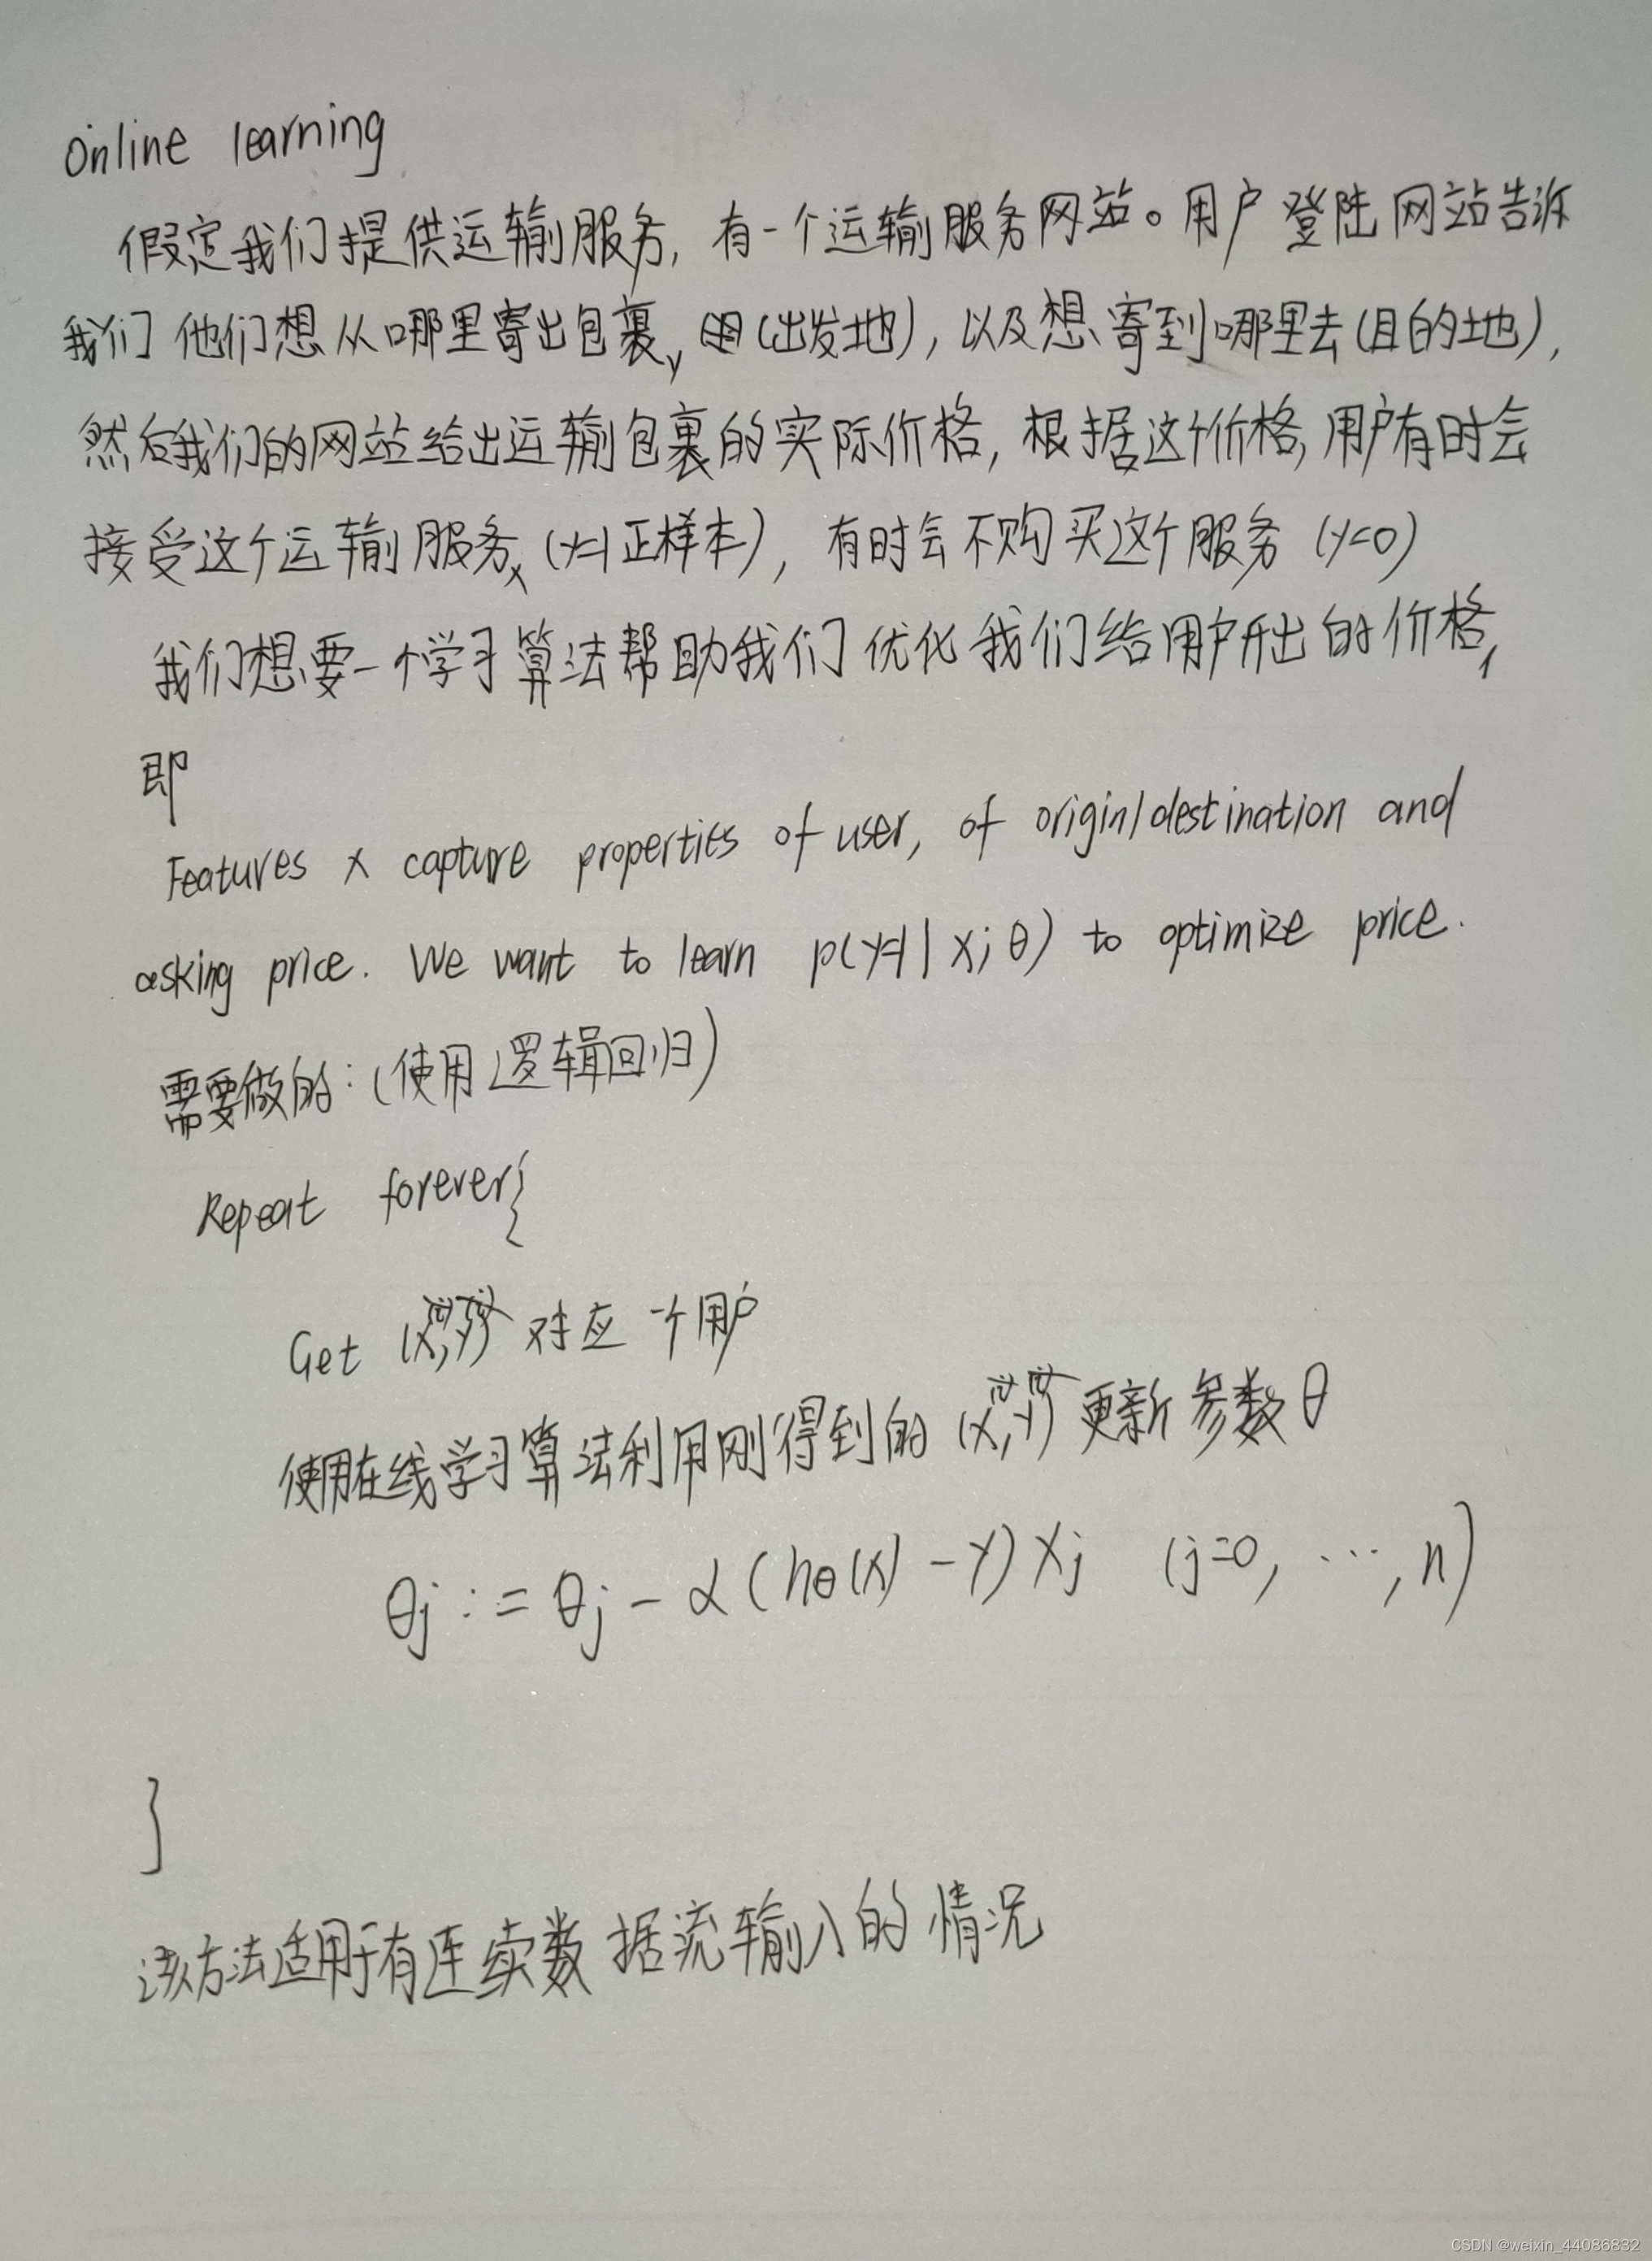 Online learning
假定我们提供运输服务, 有一个运输服务网站。用户登陆网站告诉
我们他们想从哪里寄出包裹, (出发地), 以及想寄到哪里去(目的地),
然后我们的网站给出运输包裹的实际价格, 根据这个价格, 用户有时会
接受这个运输服务, (y=1正样本), 有时会不购买这个服务 (y=0)
我们想要一个学习算法帮助我们优化我们给用户开出的价格,
即
Features x capture properties of user, of origin/destination and
asking price. We want to learn p(y=1|x;θ) to optimize price.
需要做的:(使用逻辑回归)
Repeat forever{
Get (x,y) 对应一个用户
使用在线学习算法利用刚得到的(x,y)更新参数θ
θj := θj - α(hθ(x) - y)xj (j=0, ⋯, n)
}
该方法适用于有连续数据流输入的情况
CSDN @weixin_44086832